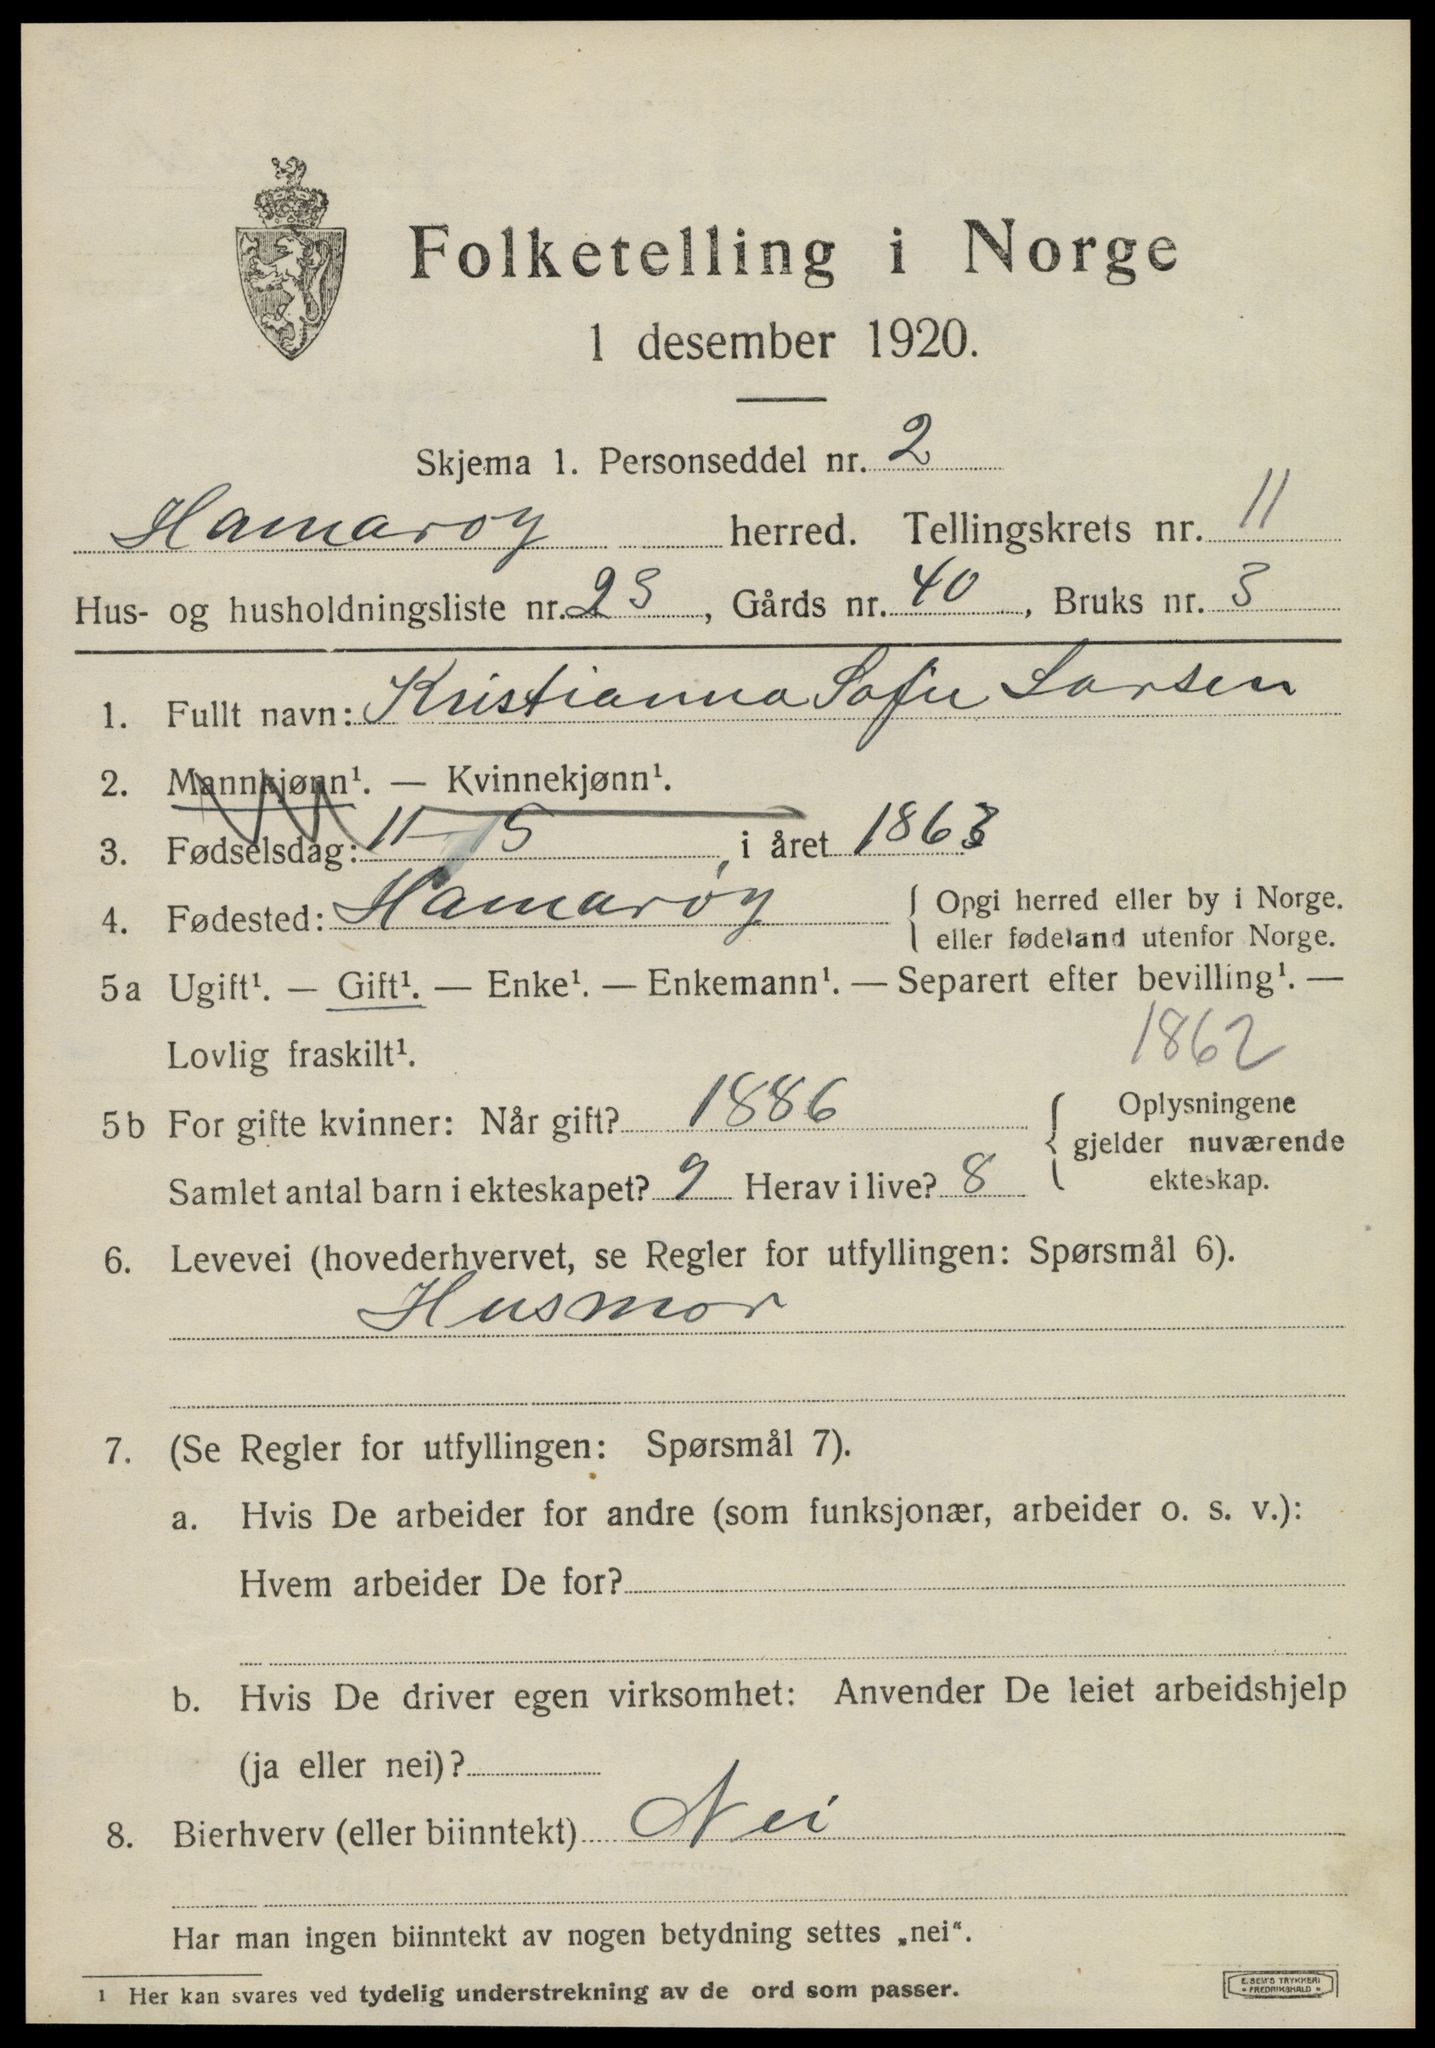 Folketelling i Norge
1 desember 1920.
Skjema 1. Personseddel nr. 2
Hamarøy herred. Tellingskrets nr. 11
Hus- og husholdningsliste nr. 23, Gårds nr. 40, Bruks nr. 3
1. Fullt navn: Kristianna Sofie Larsen
2. Mannkjønn¹. — Kvinnekjønn¹.
3. Fødselsdag: 11-15, i året 1863
4. Fødested: Hamarøy { Opgi herred eller by i Norge.
eller fødeland utenfor Norge.
5a Ugift¹. — Gift¹. — Enke¹. — Enkemann¹. — Separert efter bevilling¹. —
Lovlig fraskilt¹. 1862
5b For gifte kvinner: Når gift? 1886
Samlet antal barn i ekteskapet? 9 Herav i live? 8
{ Oplysningene
gjelder nuværende
ekteskap.
6. Levevei (hovederhvervet, se Regler for utfyllingen: Spørsmål 6).
Husmor
7. (Se Regler for utfyllingen: Spørsmål 7).
a. Hvis De arbeider for andre (som funksjonær, arbeider o. s. v.):
Hvem arbeider De for?
b. Hvis De driver egen virksomhet: Anvender De leiet arbeidshjelp
(ja eller nei)?
8. Bierhverv (eller biinntekt) Nei
Har man ingen biinntekt av nogen betydning settes „nei“.
¹ Her kan svares ved tydelig understrekning av de ord som passer.
E. SEM'S TRYKKERI
* FREDRIKSHALD *